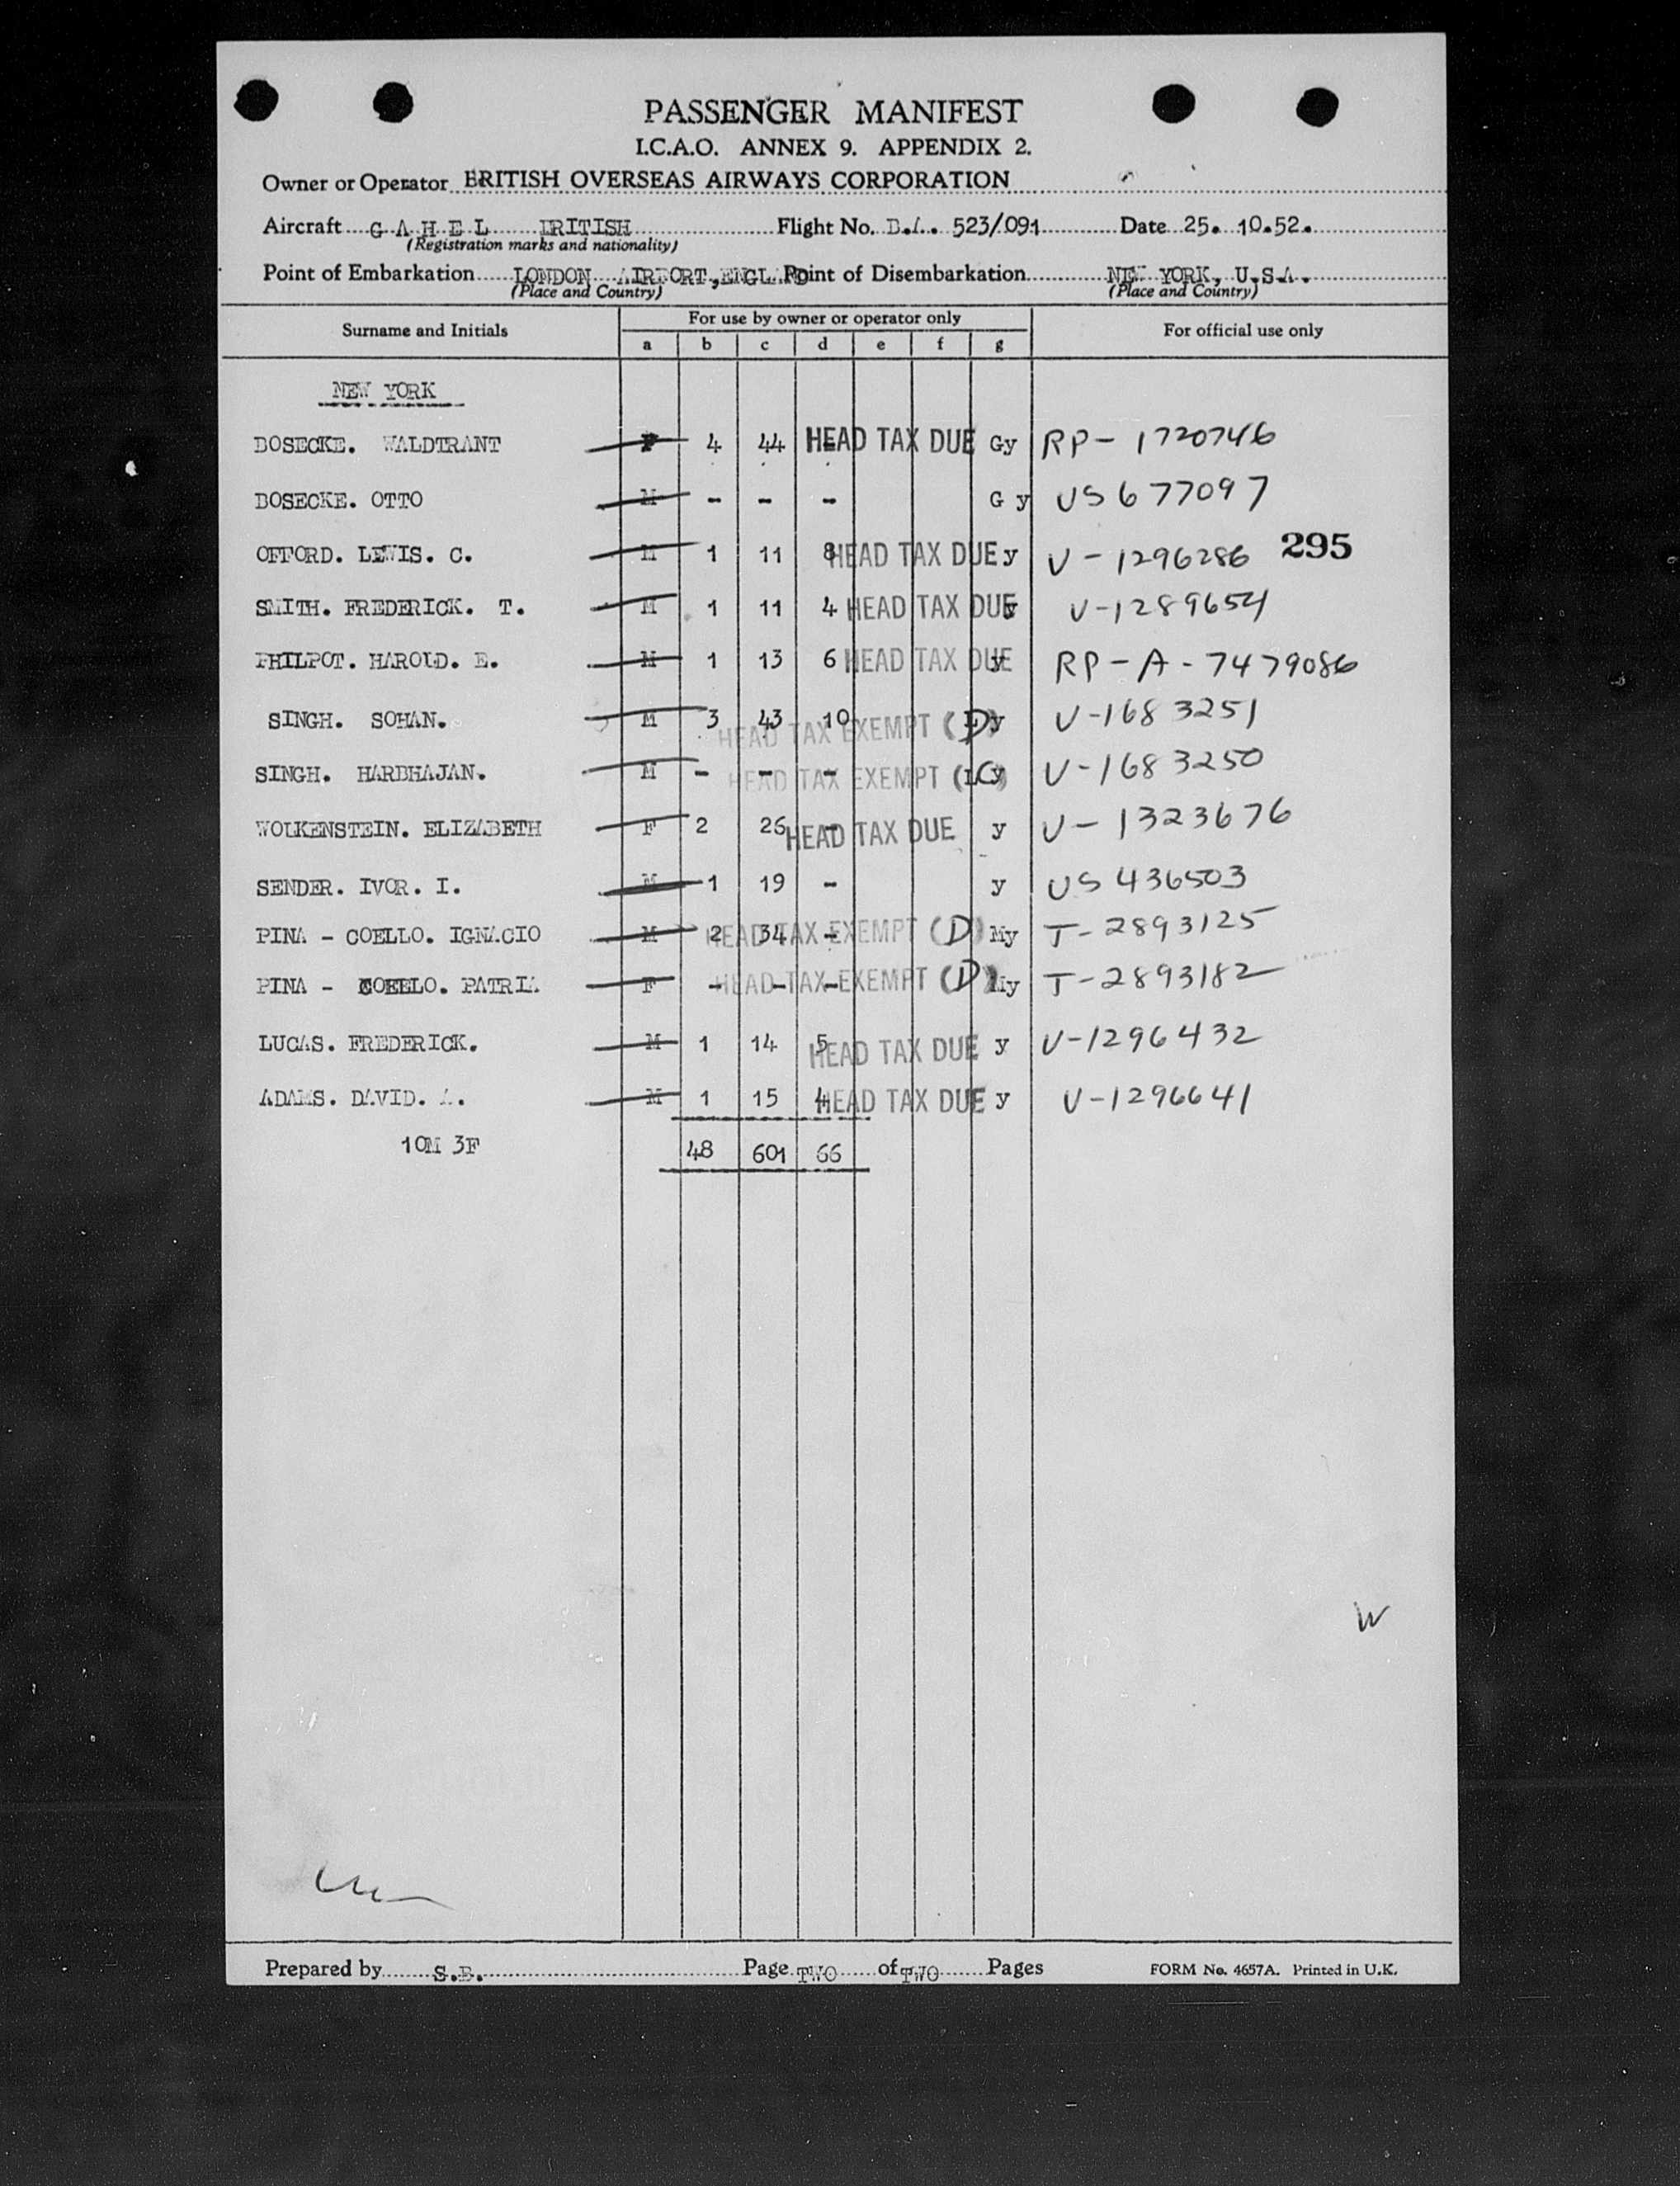 PASSENGER MANIFEST
I.C.A.O. ANNEX 9. APPENDIX 2.
Owner or Operator BRITISH OVERSEAS AIRWAYS CORPORATION
Aircraft G A H E L BRITISH Flight No. B.A. 523/091 Date 25. 10.52.
(Registration marks and nationality)
Point of Embarkation LONDON AIRPORT, ENGLAND Point of Disembarkation NEW YORK, U.S.A.
(Place and Country) (Place and Country)
Surname and Initials For use by owner or operator only For official use only
a b c d e f g
NEW YORK
BOSECKE. WALDTRANT F 4 44 - HEAD TAX DUE Gy RP- 1720746
BOSECKE. OTTO M - - - G y US 677097
OFFORD. LEWIS. C. M 1 11 8 HEAD TAX DUE y V-1296286 295
SMITH. FREDERICK. T. M 1 11 4 HEAD TAX DUE y V-1289654
PHILPOT. HAROLD. E. M 1 13 6 HEAD TAX DUE y RP-A-7479086
SINGH. SOHAN. M 3 43 10 HEAD TAX EXEMPT (D) y V-1683251
SINGH. HARBHAJAN. M - - - HEAD TAX EXEMPT ( ) y V-1683250
WOLKENSTEIN. ELIZABETH F 2 26 - HEAD TAX DUE y V-1323676
SENDER. IVOR. I. M 1 19 - y US 436503
PINA - COELLO. IGNACIO M 2 34 - HEAD TAX EXEMPT (D) My T-2893125
PINA - COELLO. PATRIA F - - - HEAD TAX EXEMPT (D) My T-2893182
LUCAS. FREDERICK. M 1 14 5 HEAD TAX DUE y V-1296432
ADAMS. DAVID. A. M 1 15 4 HEAD TAX DUE y V-1296641
10M 3F 48 601 66
W
Prepared by S.B. Page TWO of TWO Pages FORM No. 4657A. Printed in U.K.